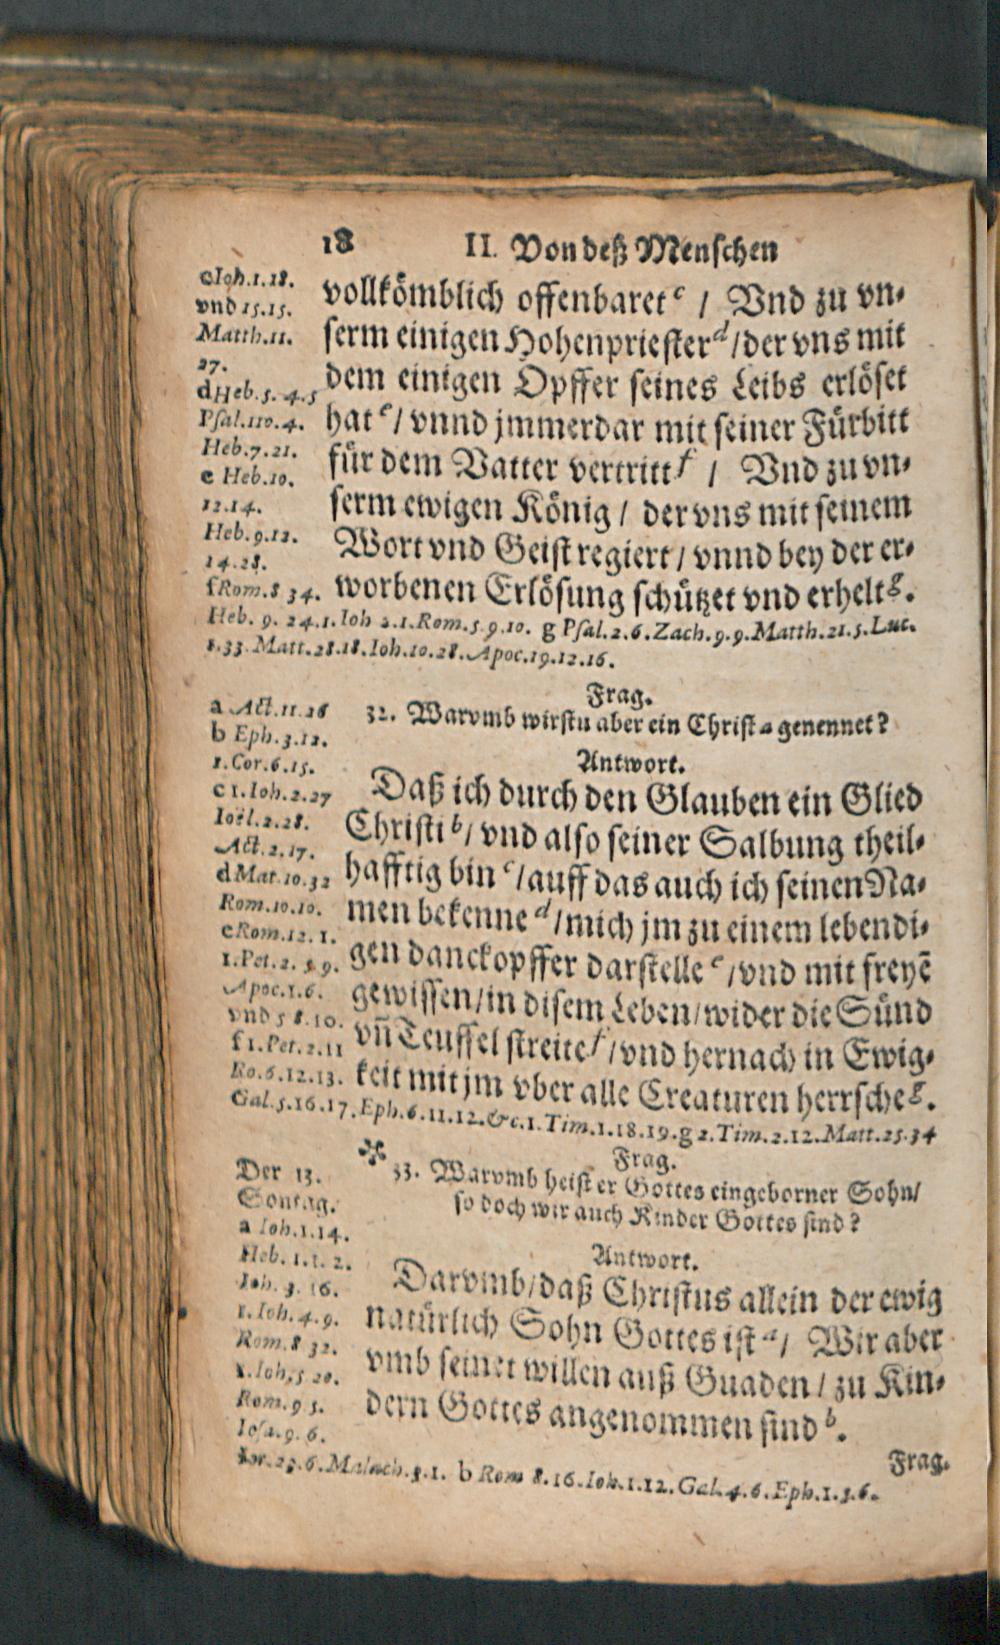 18 II. Von deß Menschen
c Ioh.1.18.
vnd 15.15.
Matth.11.
27.
d Heb.5.4.5
Psal.110.4.
Heb.7.21.
e Heb.10.
12.14.
Heb.9.12.
14.28.
f Rom.8 34.
vollkömblich offenbaret c / Vnd zu vn-
serm einigen Hohenpriester d / der vns mit
dem einigen Opffer seines Leibs erlöset
hat e / vnnd jmmerdar mit seiner Fürbitt
für dem Vatter vertritt f / Vnd zu vn-
serm ewigen König / der vns mit seinem
Wort vnd Geist regiert / vnnd bey der er-
worbenen Erlösung schützet vnd erhelt g.
Heb. 9. 24.1.Ioh 2.1.Rom.5.9.10. g Psal.2.6.Zach.9.9.Matth.21.5.Luc.
1.33.Matt.28.18.Ioh.10.28.Apoc.19.12.16.
Frag.
32. Warvmb wirstu aber ein Christ a genennet?
Antwort.
a Act.11.26
b Eph.3.12.
1.Cor.6.15.
c 1.Ioh.2.27
Ioël.2.28.
Act.2.17.
d Mat.10.32
Rom.10.10.
e Rom.12.1.
1.Pet.2. 5 9.
Apoc.1.6.
vnd 5 8.10.
f 1.Pet.2.11
Ro.6.12.13.
Daß ich durch den Glauben ein Glied
Christi b / vnd also seiner Salbung theil-
hafftig bin c / auff das auch ich seinen Na-
men bekenne d / mich jm zu einem lebendi-
gen danckopffer darstelle e / vnd mit freyē
gewissen / in disem Leben / wider die Sünd
vn̄ Teuffel streite f / vnd hernach in Ewig-
keit mit jm vber alle Creaturen herrsche g.
Gal.5.16.17.Eph.6.11.12.&c.1.Tim.1.18.19.g 2.Tim.2.12.Matt.25.34
Frag.
33. Warvmb heist er Gottes eingeborner Sohn /
so doch wir auch Kinder Gottes sind?
Antwort.
Der 13.
Sontag.
a Ioh.1.14.
Heb. 1.1. 2.
Ioh. 3. 16.
1.Ioh.4.9.
Rom.8 32.
1.Ioh.5 20.
Rom.9 5.
Iesa.9.6.
Darvmb / daß Christus allein der ewig
natürlich Sohn Gottes ist a / Wir aber
vmb seinet willen auß Gnaden / zu Kin-
dern Gottes angenommen sind b.
Ier.23.6.Malach.3.1. b Rom 8.16.Ioh.1.12.Gal.4.6.Eph.1.5.6.
Frag.